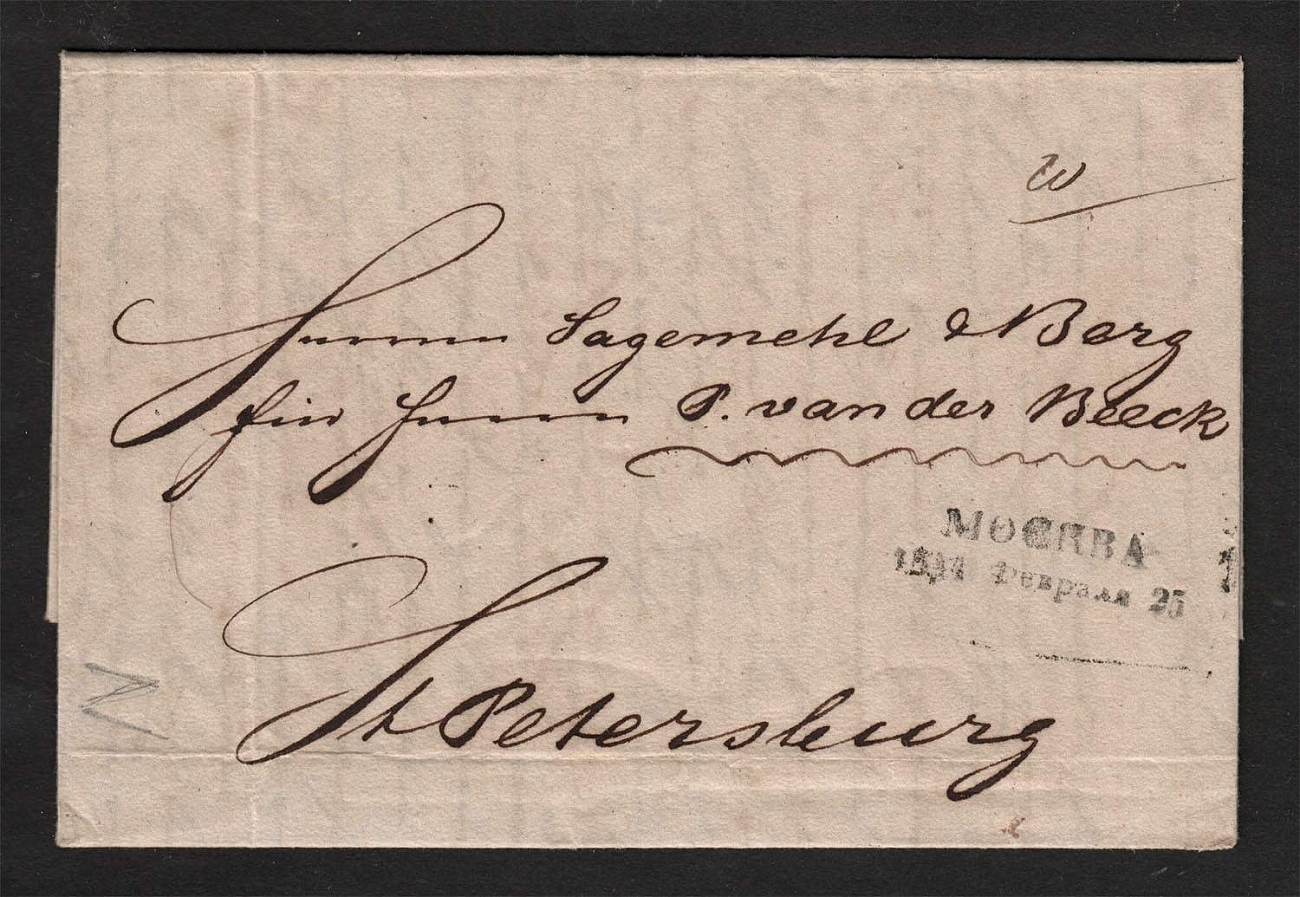 Herren Sagemehl & Berg
für Herrn P. van der Beeck
МОСКВА
1834 Февраля 25
St Petersburg